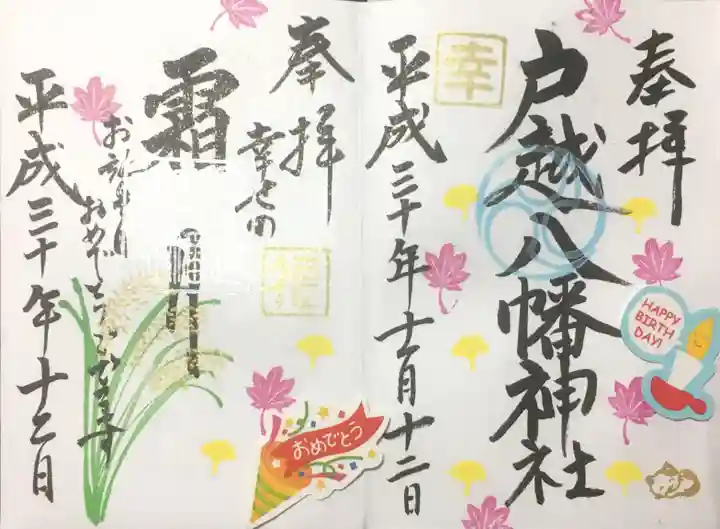 奉拝
戸越八幡神社
幸
平成三十年十一月十二日
HAPPY
BIRTH
DAY!
奉拝
霜
お誕生日
おめでとうございます
平成三十年十二日
おめでとう